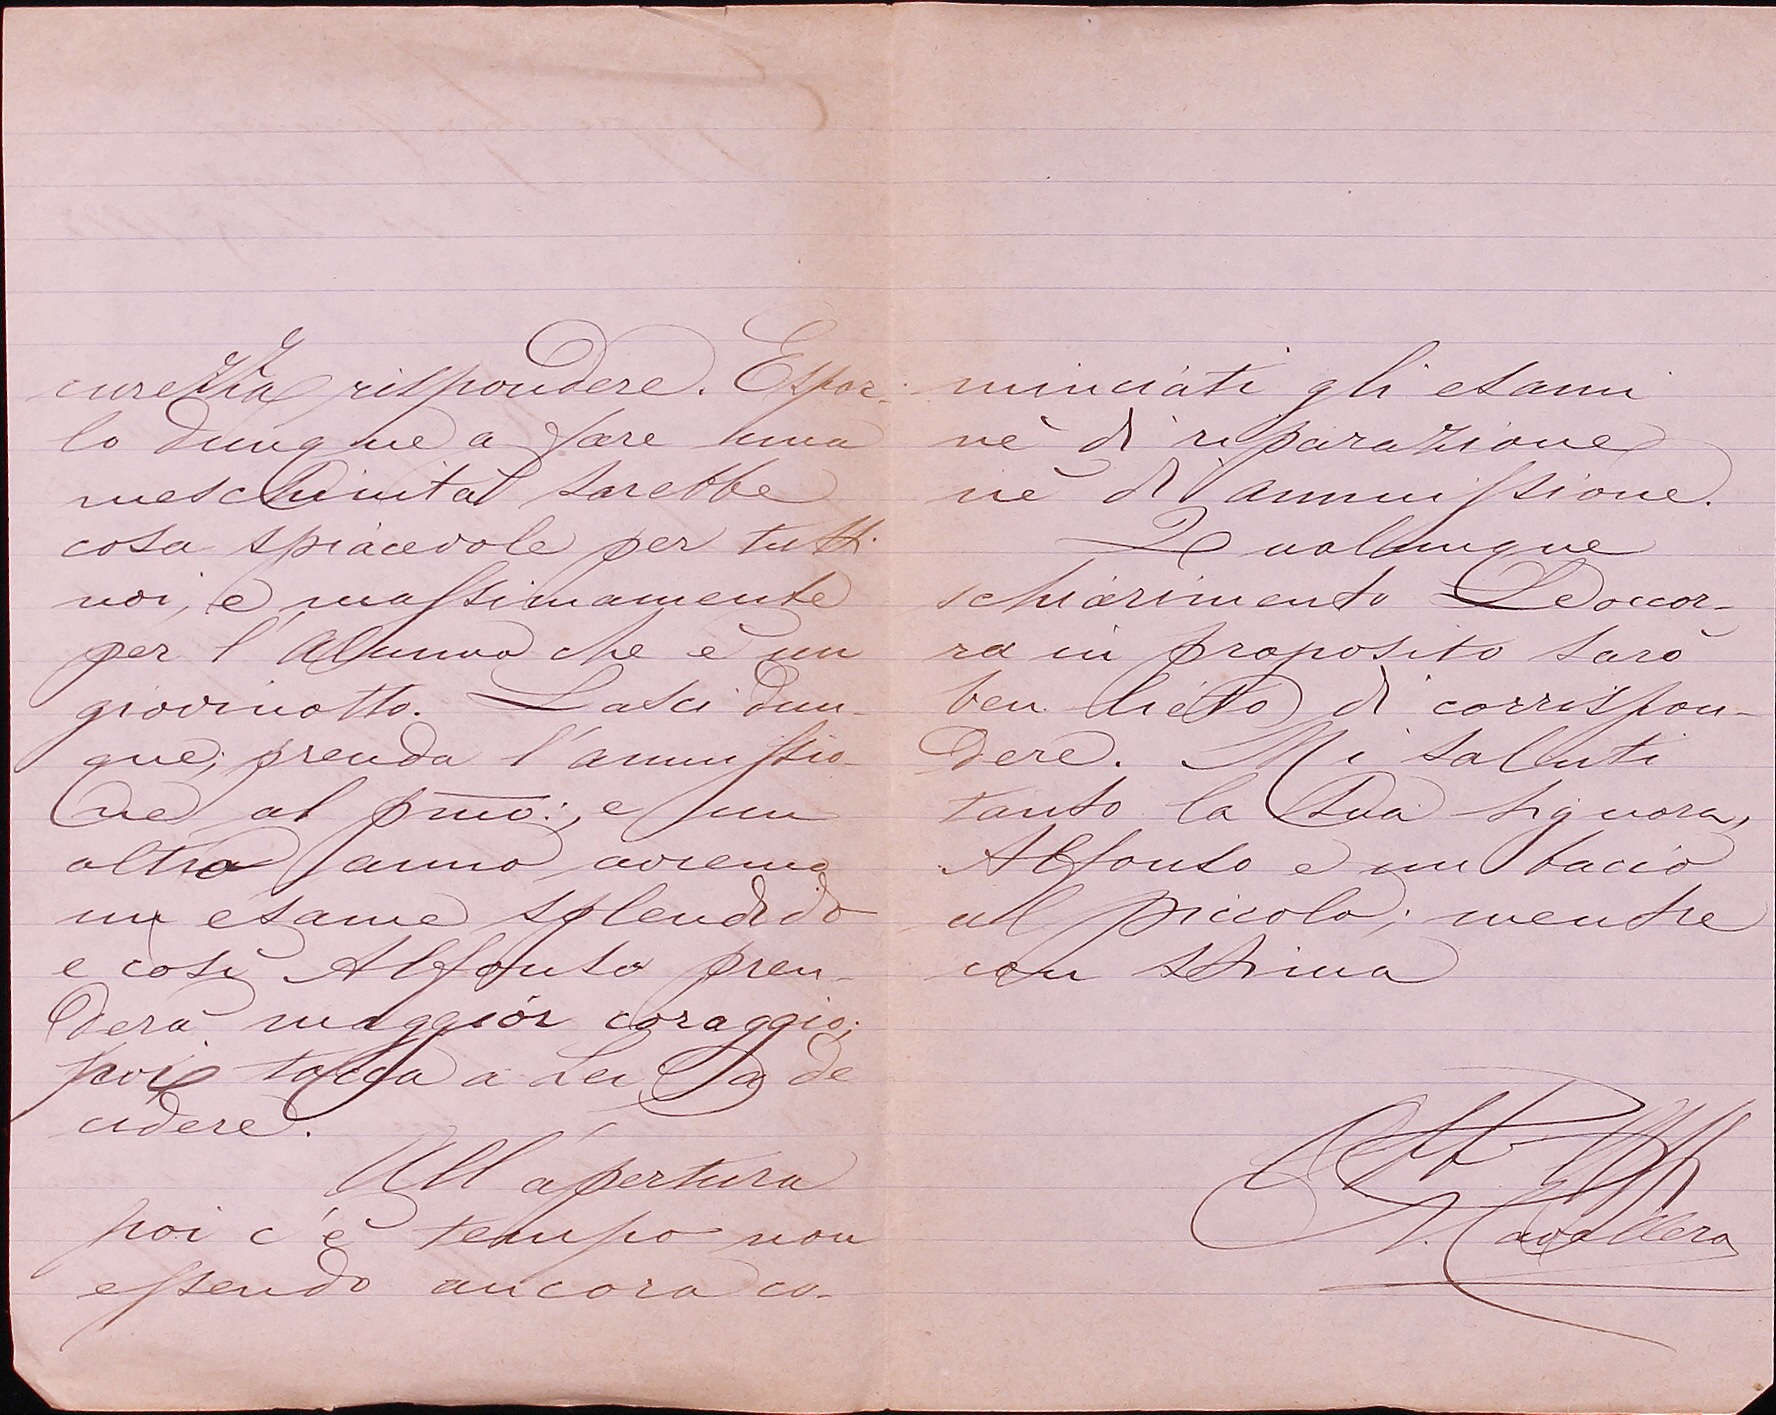 curezza rispondere. Espor-
lo dunque a fare una
meschinità sarebbe
cosa spiacevole per tutti
noi, e massimamente
per l'alunno che è un
giovinotto. Lasci dun-
que; prenda l'ammissio-
ne al pmo: e un
altro anno avremo
un esame splendido
e così Alfonso pren-
derà maggior coraggio;
poi tocca a Lei da de
cidere.
All'apertura
poi c'è tempo non
essendo ancora co-
minciati gli esami
nè di riparazione
nè di ammissione.
Qualunque
schiarimento Le occor-
ra in proposito sarò
ben lieto di corrispon-
dere. Mi saluti
tanto la sua signora,
Alfonso e un bacio
al piccolo; mentre
con stima
V. Cavallero